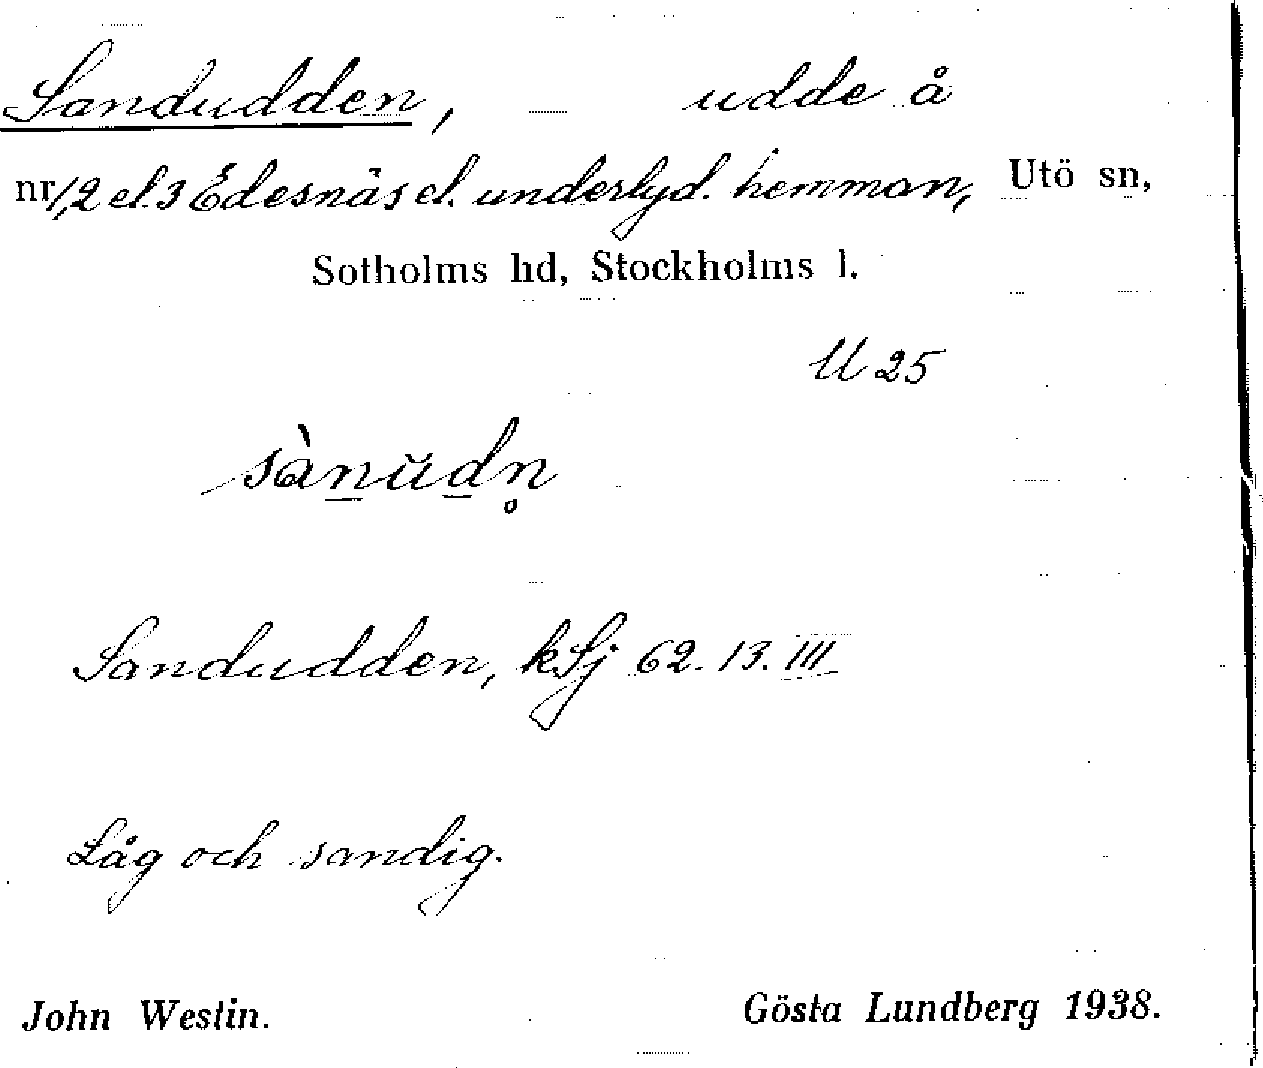 Sandudden, udde å
nr 1,2 el. 3 Edesnäs el. underlyd. hemman, Utö sn,
Sotholms hd, Stockholms l.
U 25
sànŭdn̥
Sandudden, kSj 62. 13. III
Låg och sandig.
John Westin. Gösta Lundberg 1938.